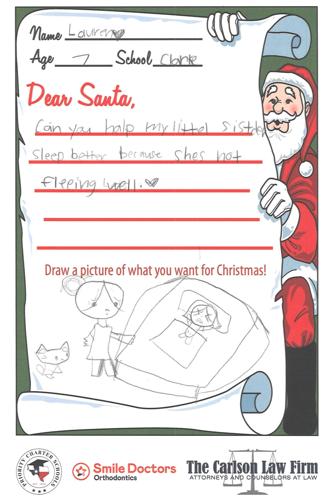 Name Lauren
Age 7 School Clarke
Dear Santa,
Can you help my littel sister
sleep better because shes not
fleeing well.
Draw a picture of what you want for Christmas!
PRIORITY CHARTER SCHOOLS
Smile Doctors
Orthodontics
The Carlson Law Firm
ATTORNEYS AND COUNSELORS AT LAW